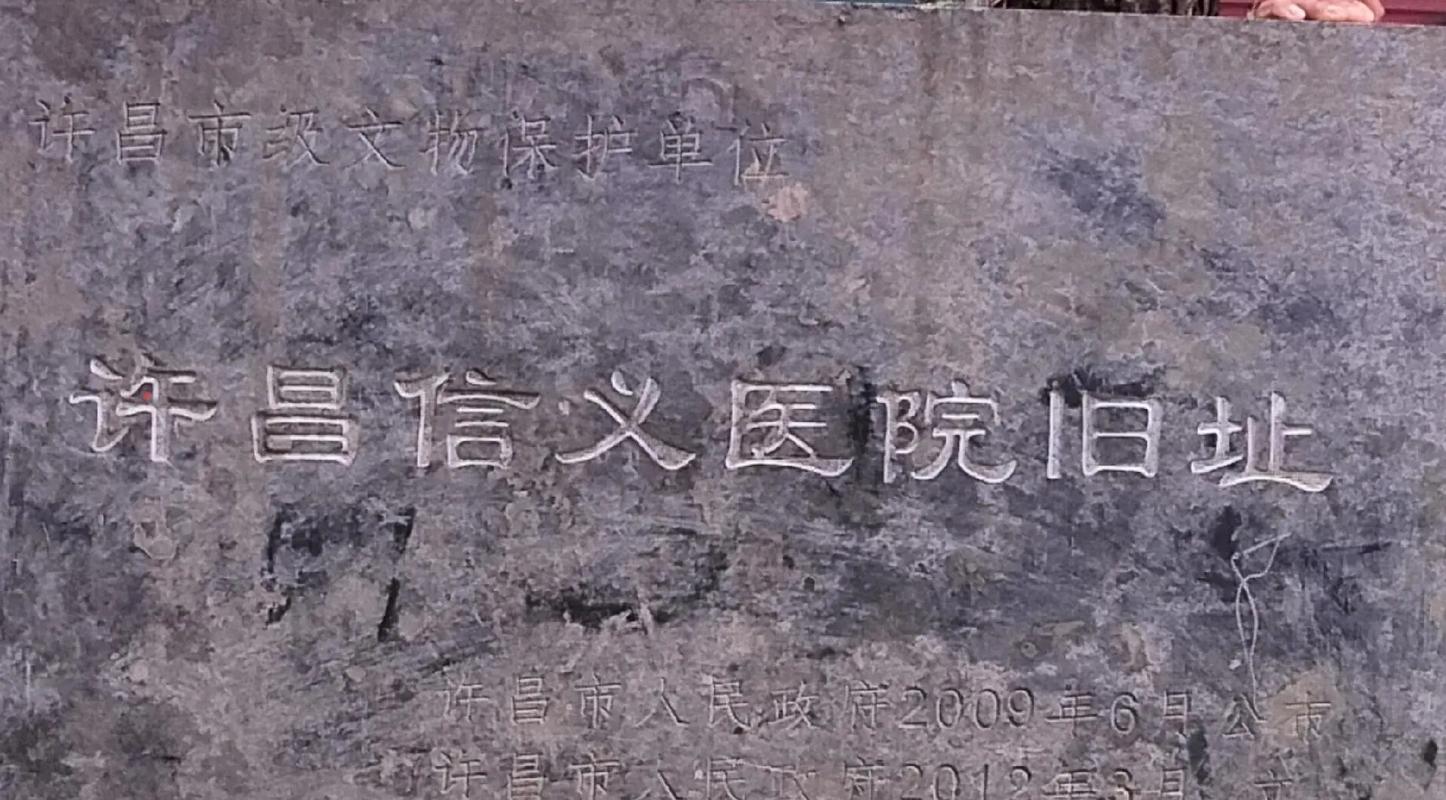 许昌市级文物保护单位
许昌信义医院旧址
许昌市人民政府2009年6月公布
许昌市人民政府2012年3月 立